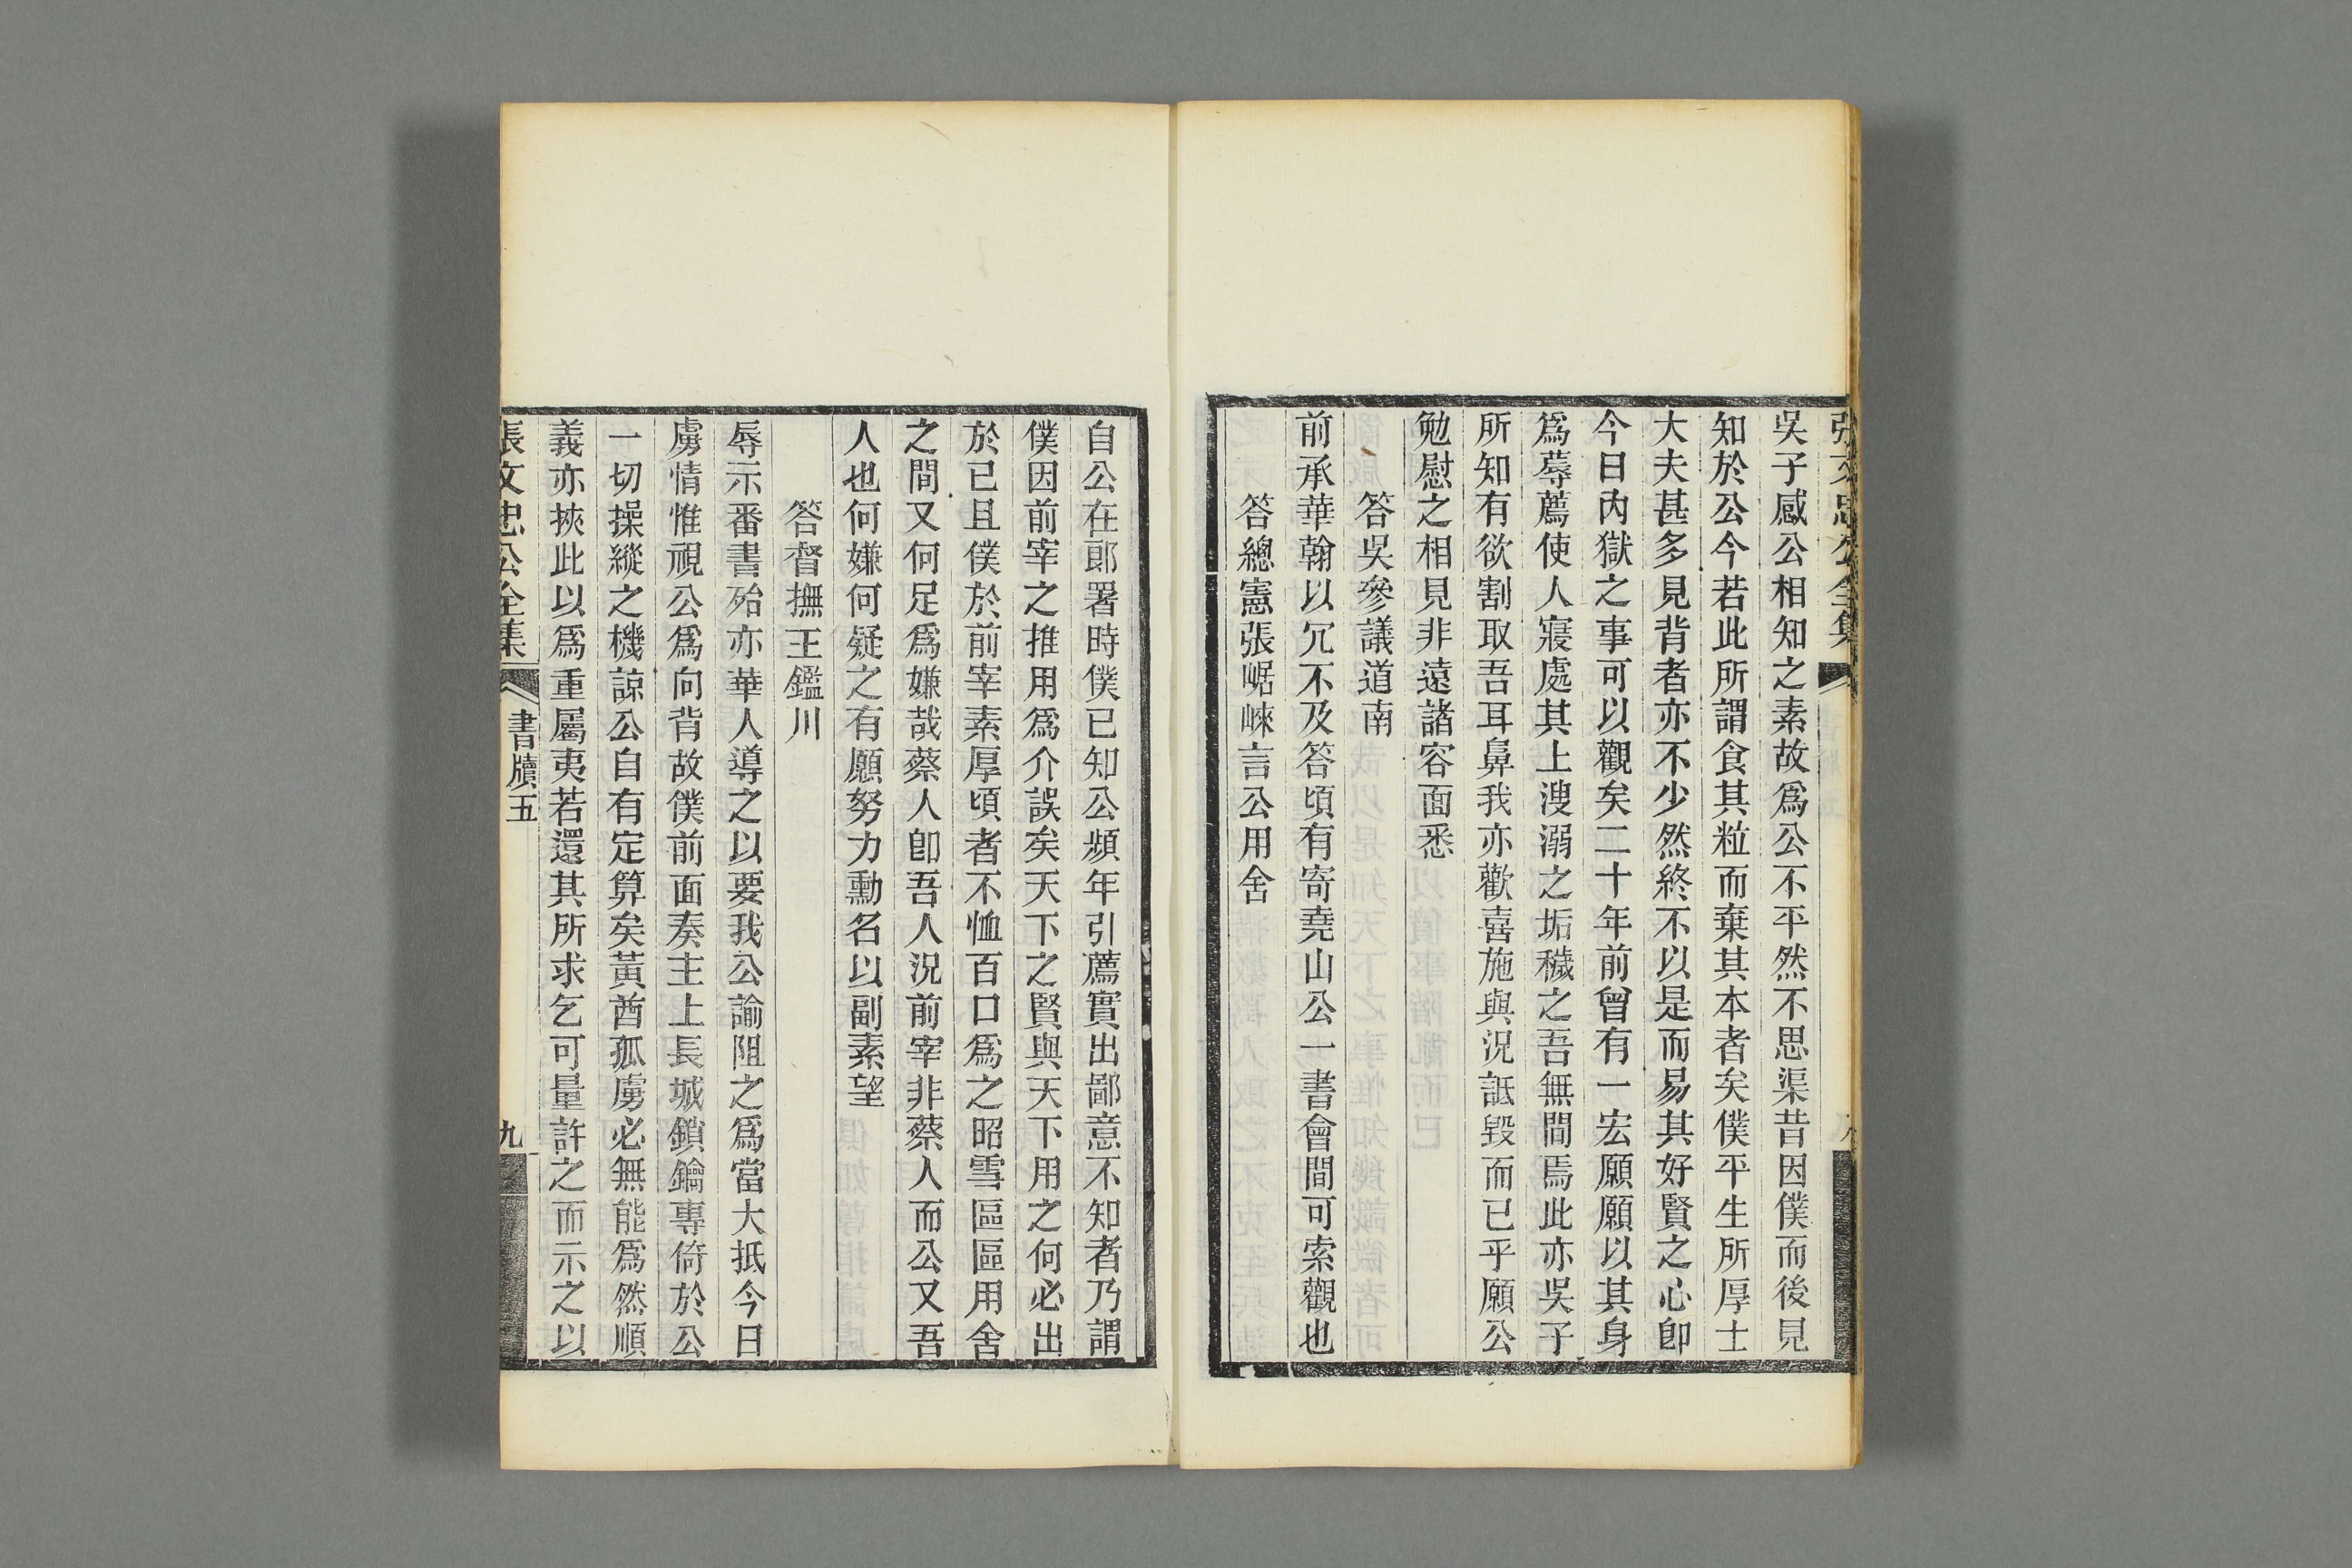 張文忠公全集
吳子感公相知之素故爲公不平然不思渠昔因僕而後見
知於公今若此所謂食其粒而棄其本者矣僕平生所厚士
大夫甚多見背者亦不少然終不以是而易其好賢之心卽
今日內獄之事可以觀矣二十年前曾有一宏願願以其身
爲蓐薦使人寢處其上溲溺之垢穢之吾無間焉此亦吳子
所知有欲割取吾耳鼻我亦歡喜施與況詆毀而已乎願公
勉慰之相見非遠諸容面悉
答吳參議道南
前承華翰以冗不及答頃有寄堯山公一書會間可索觀也
答總憲張崌崍言公用舍
自公在郎署時僕已知公頻年引薦實出鄙意不知者乃謂
僕因前宰之推用爲介誤矣天下之賢與天下用之何必出
於已且僕於前宰素厚頃者不恤百口爲之昭雪區區用舍
之間又何足爲嫌哉蔡人卽吾人況前宰非蔡人而公又吾
人也何嫌何疑之有願努力勳名以副素望
答督撫王鑑川
辱示番書殆亦華人導之以要我公諭阻之爲當大抵今日
虜情惟視公爲向背故僕前面奏主上長城鎖鑰專倚於公
一切操縱之機諒公自有定算矣黃酋孤虜必無能爲然順
義亦挾此以爲重屬夷若還其所求乞可量許之而示之以
張文忠公全集
書牘五
九